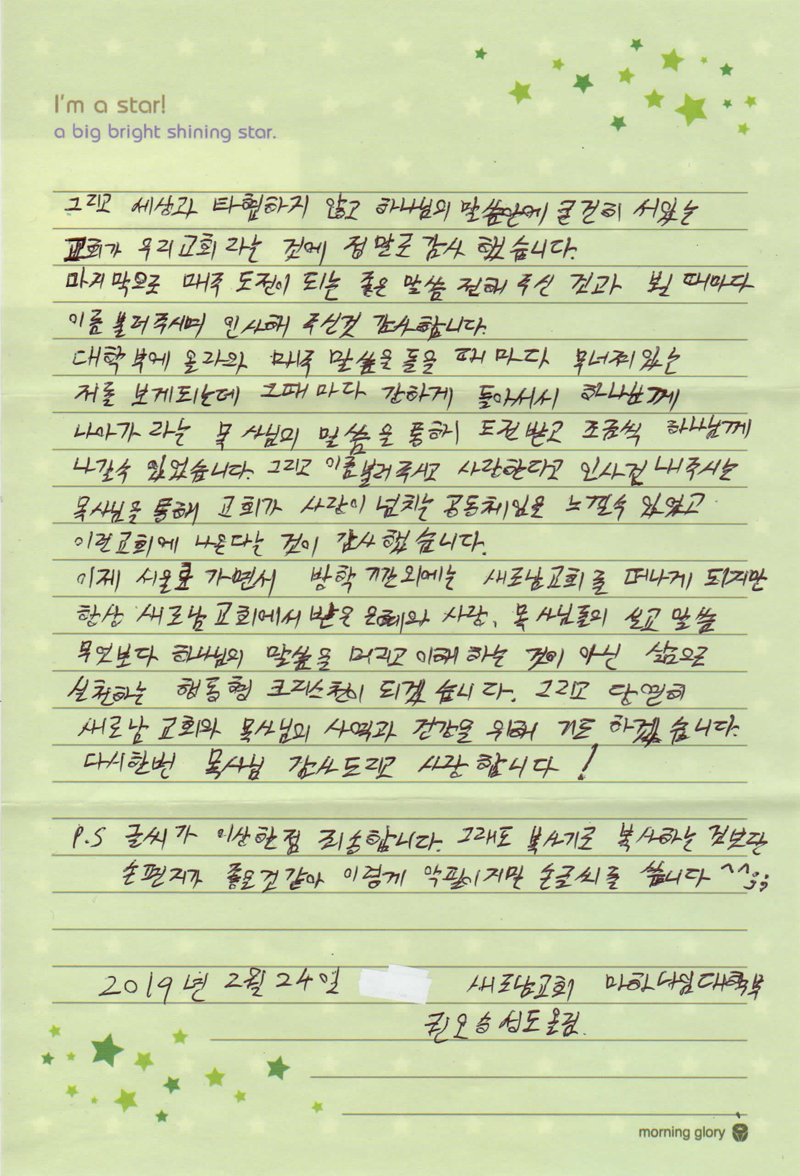 I'm a star!
a big bright shining star.
그리고 세상과 타협하지 않고 하나님의 말씀안에 굳건히 서있는
교회가 우리교회 라는 것에 정말로 감사 했습니다.
마지막으로 매주 도전이 되는 좋은 말씀 전해 주신 것과 뵐 때마다
이름 불러주시며 인사해 주신것 감사합니다.
대학부에 올라와 매주 말씀을 들을 때 마다 무너져있는
저를 보게되는데 그때 마다 강하게 돌아서서 하나님께
나아가 라는 목사님의 말씀을 통해 도전받고 조금씩 하나님께
나갈수 있었습니다. 그리고 이름불러주시고 사랑한다고 인사건내주시는
목사님을 통해 교회가 사랑이 넘치는 공동체임을 느낄수 있었고
이런교회에 나온다는 것이 감사했습니다.
이제 서울로 가면서 방학 기간외에는 새로남교회를 떠나게 되지만
항상 새로남교회에서 받은 은혜와 사랑, 목사님들의 설교 말씀
무엇보다 하나님의 말씀을 머리로 이해 하는 것이 아닌 삶으로
실천하는 행동형 크리스찬이 되겠습니다. 그리고 당연히
새로남 교회와 목사님의 사역과 건강을 위해 기도 하겠습니다.
다시한번 목사님 감사드리고 사랑합니다!
P.S 글씨가 이상한점 죄송합니다. 그래도 복사기로 복사하는 것보단
손편지가 좋은것같아 이렇게 악필이지만 손글씨를 씁니다 ^^;;
2019년 2월 24일 새로남교회 마하나임대학부
권오승 성도올림.
morning glory